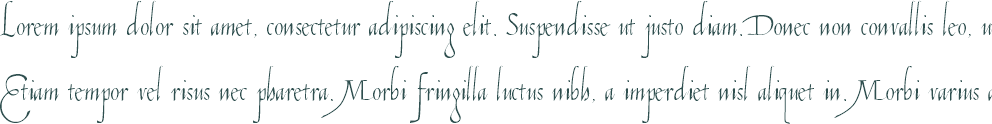 Lorem ipsum dolor sit amet, consectetur adipiscing elit. Suspendisse ut justo diam. Donec non convallis leo, u
Etiam tempor vel risus nec pharetra. Morbi fringilla luctus nibh, a imperdiet nisl aliquet in. Morbi varius a